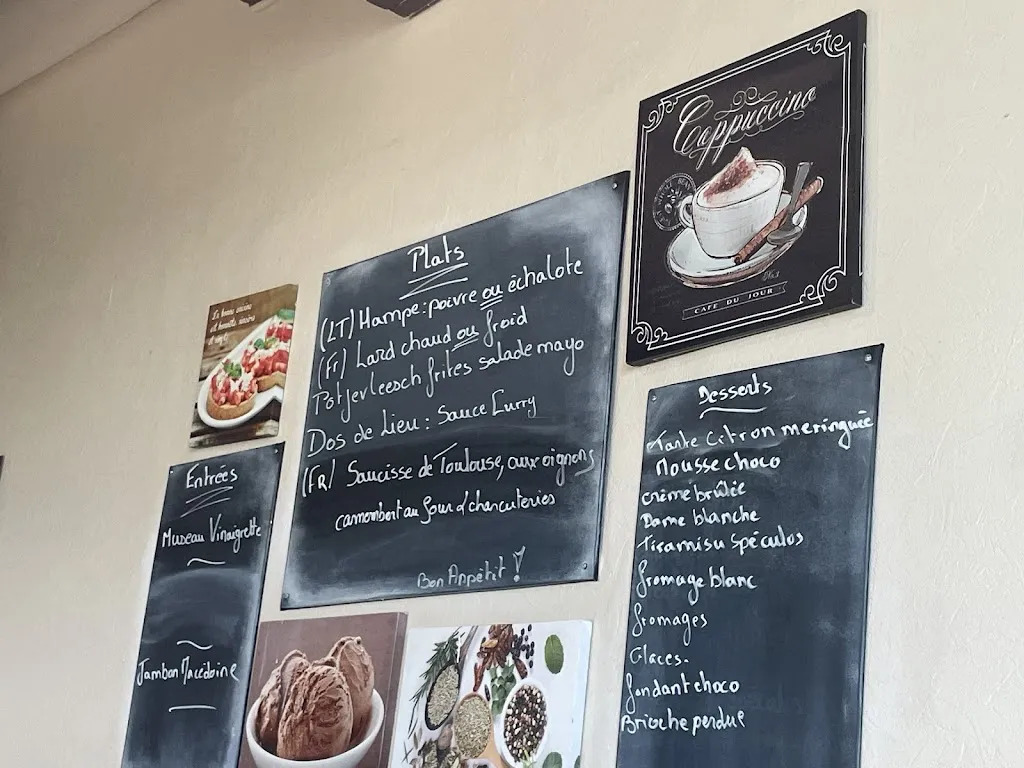 Cappuccino
CAFE DU JOUR
Plats
(IT) Hampe: poivre ou échalote
(Fr) Lard chaud ou froid
Potjevleesch frites salade mayo
Dos de Lieu: Sauce Curry
(FR) Saucisse de Toulouse, aux oignons
camembert au four d'charcuteries
Bon Appétit !
Entrées
Museau Vinaigrette
Jambon Macédoine
Desserts
Tarte Citron meringuée
Mousse choco
Crème brûlée
Dame blanche
Tiramisu Spéculos
fromage blanc
fromages
Glaces.
fondant choco
Brioche perdue